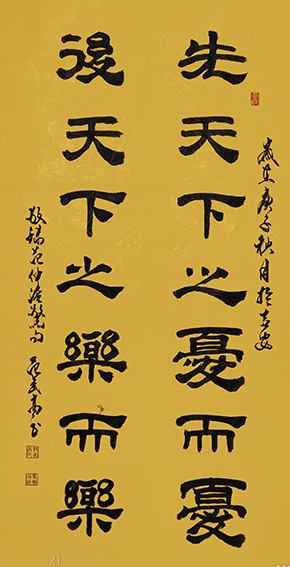 先天下之憂而憂
後天下之樂而樂
歲在庚子秋月於古安
敬錄范仲淹警句